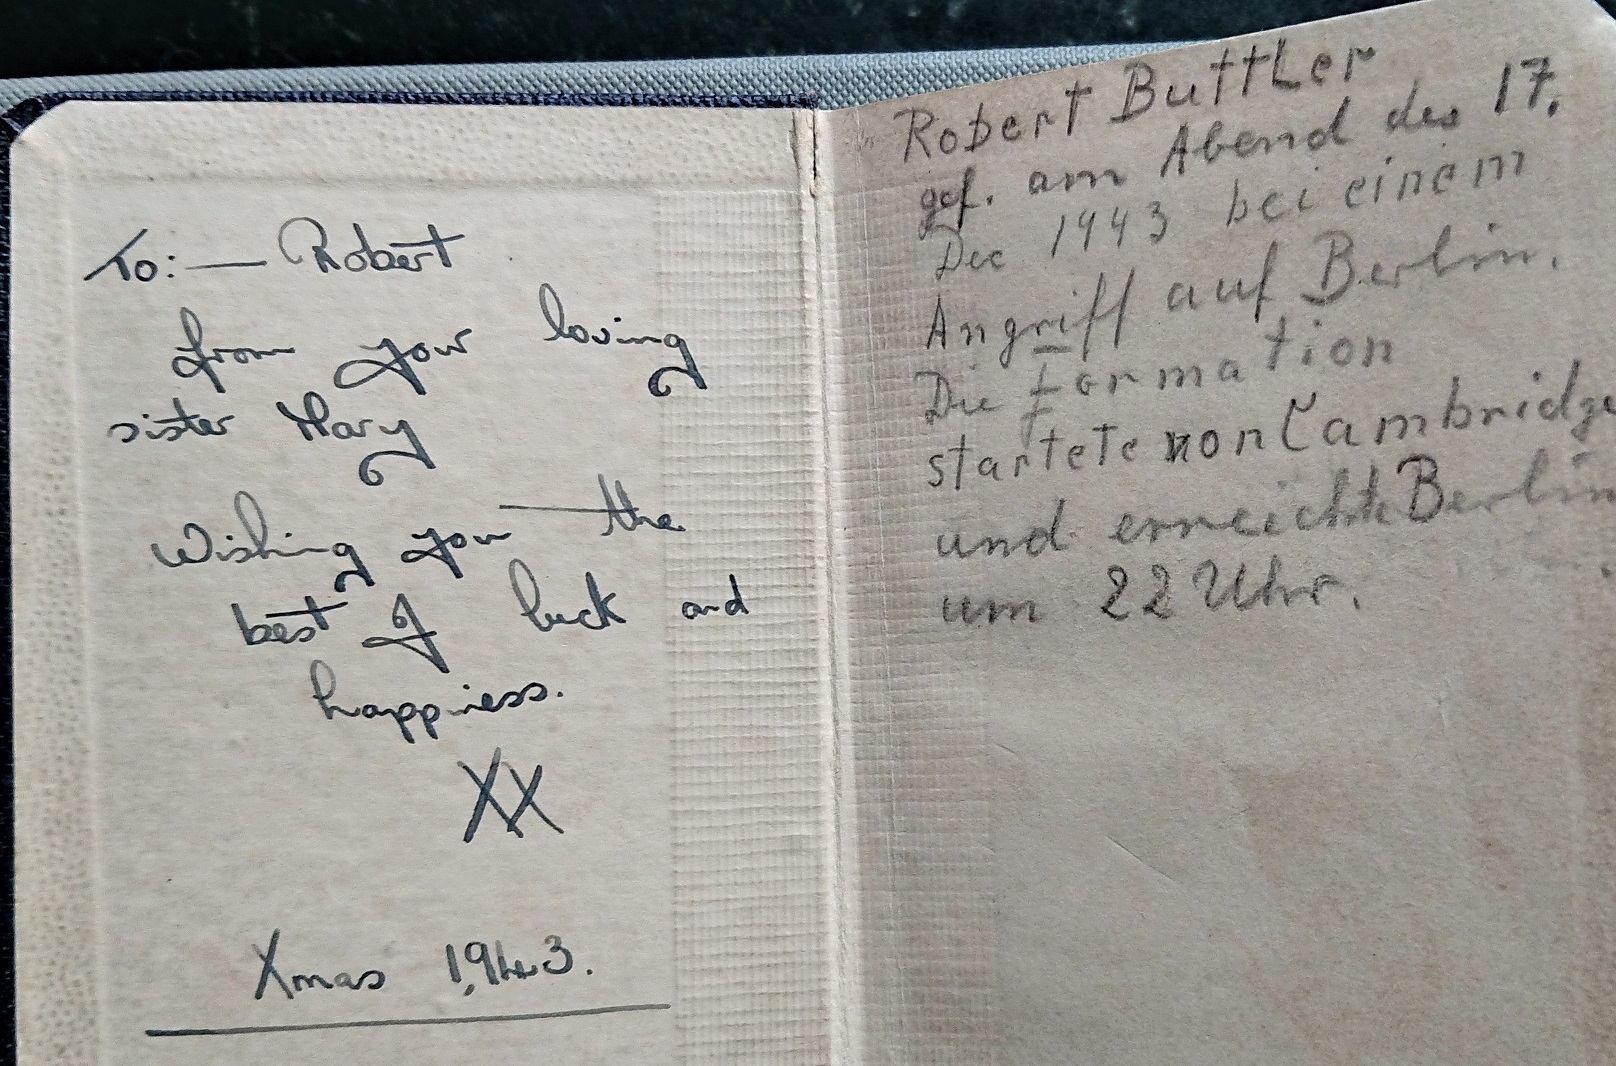 To:— Robert
from your loving
sister Mary
Wishing you — the
best of luck and
happiness.
XX
Xmas 1943.
Robert Buttler
gef. am Abend des 17.
Dec 1943 bei einem
Angriff auf Berlin.
Die Formation
startete von Cambridge
und erreichte Berlin
um 22 Uhr.